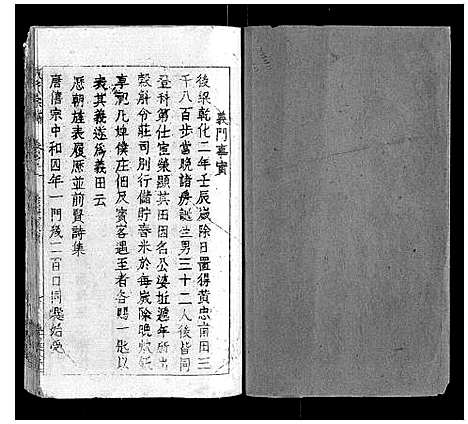 義門事實
後梁乾化二年壬辰歲除日置得黃忠甫田三
千八百步當晚諸房誕生男三十二人後皆同
登科第仕宦榮顯其田因名公婆近遞年所出
穀斛令莊司別行儲貯春米於每歲除晚炊飯
享祀几婢僕庄佃及賓客遇至者各賜一匙以
表其義遂爲義田云
歷朝旌表履歷並前賢詩集
唐僖宗中和四年一門幾二百口同爨始受